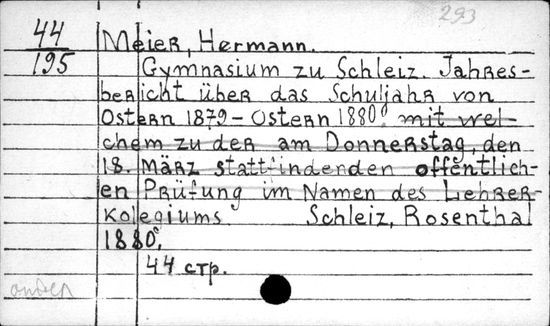 293
44 Meier, Hermann.
195 Gymnasium zu Schleiz. Jahres-
bericht über das Schuljahr von
Ostern 1879 - Ostern 1880, mit wel-
chem zu der am Donnerstag, den
18. März stattfindenden öffentlich-
en Prüfung im Namen des Lehrer-
Kolegiums Schleiz, Rosenthal
1880,
44 стр.